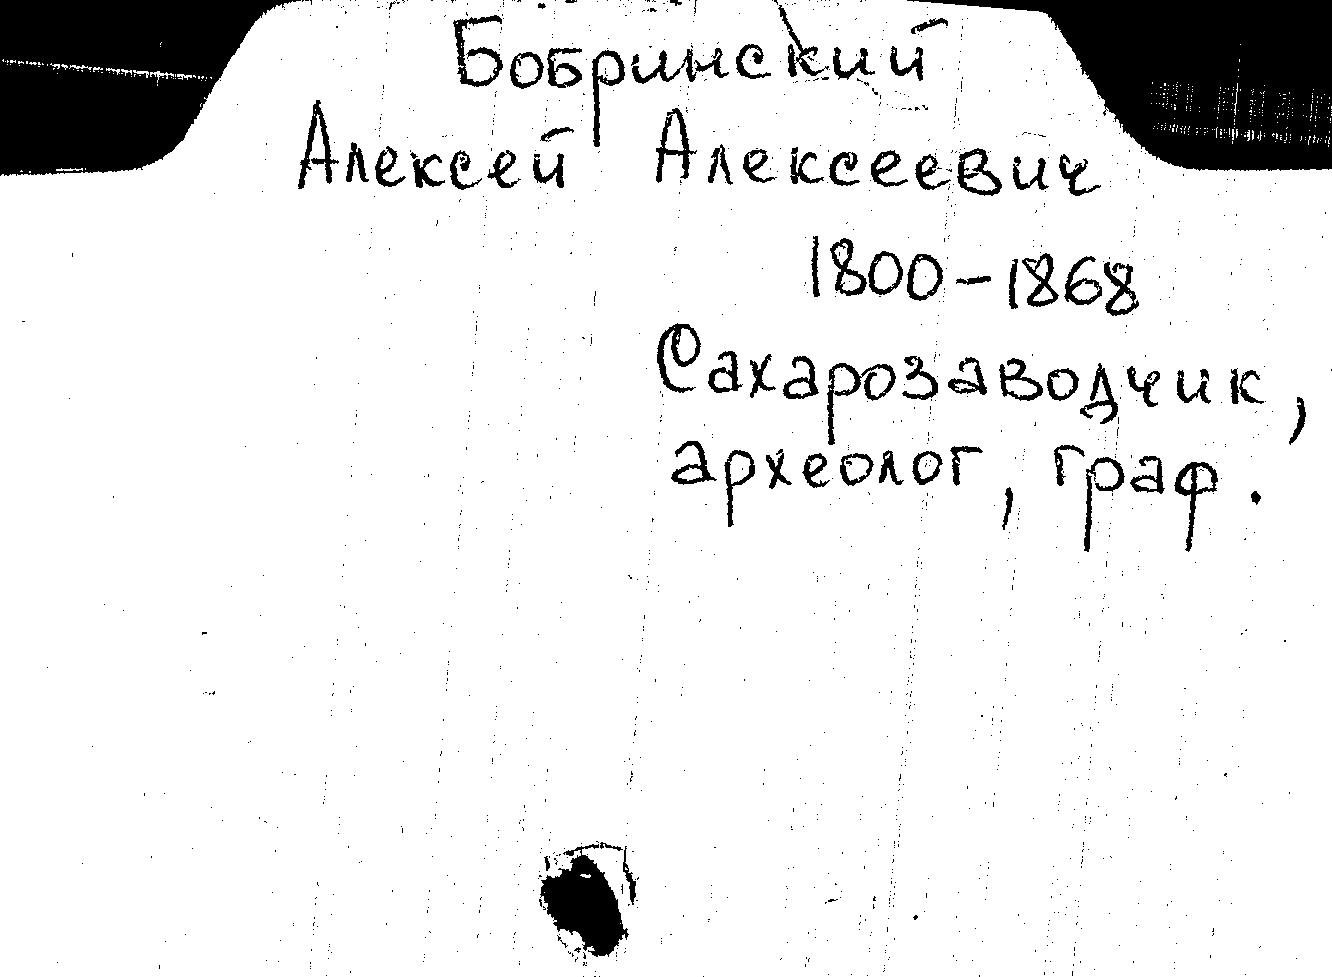 Бобринский
Алексей Алексеевич
1800-1868
Сахарозаводчик,
археолог, граф.